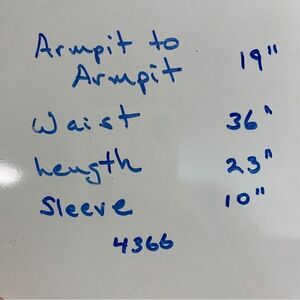 Armpit to
Armpit 19"
Waist 36"
Length 23"
Sleeve 10"
4366